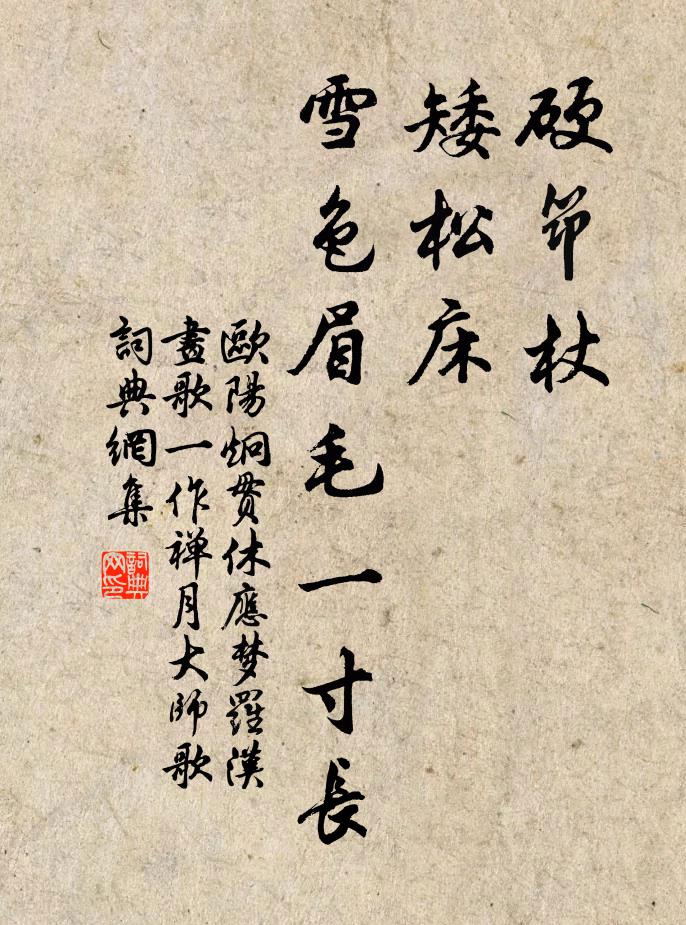 硬筇杖
矮松床
雪色眉毛一寸長
歐陽炯貫休應梦羅漢
畫歌一作禅月大師歌
詞典網集
詞典
网印